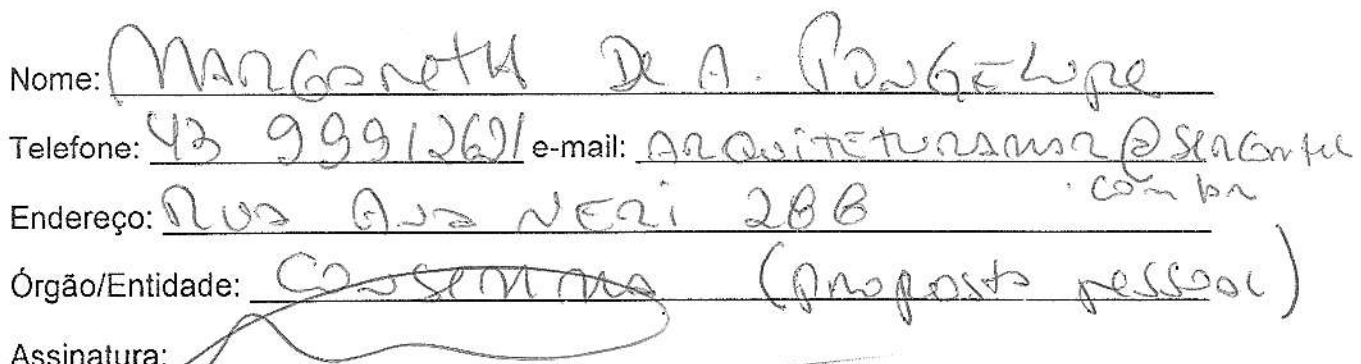 Nome: MARGARETH DE A. PONGELUPE
Telefone: 43 99912621 e-mail: ARQUITETURAMAR@SERCOMTEL
.com br
Endereço: RUA ANA NERI 288
Órgão/Entidade: CONSEMMA (proposta pessoal)
Assinatura: